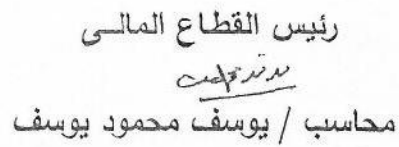 رئيس القطاع المالـى
محاسب / يوسف محمود يوسف